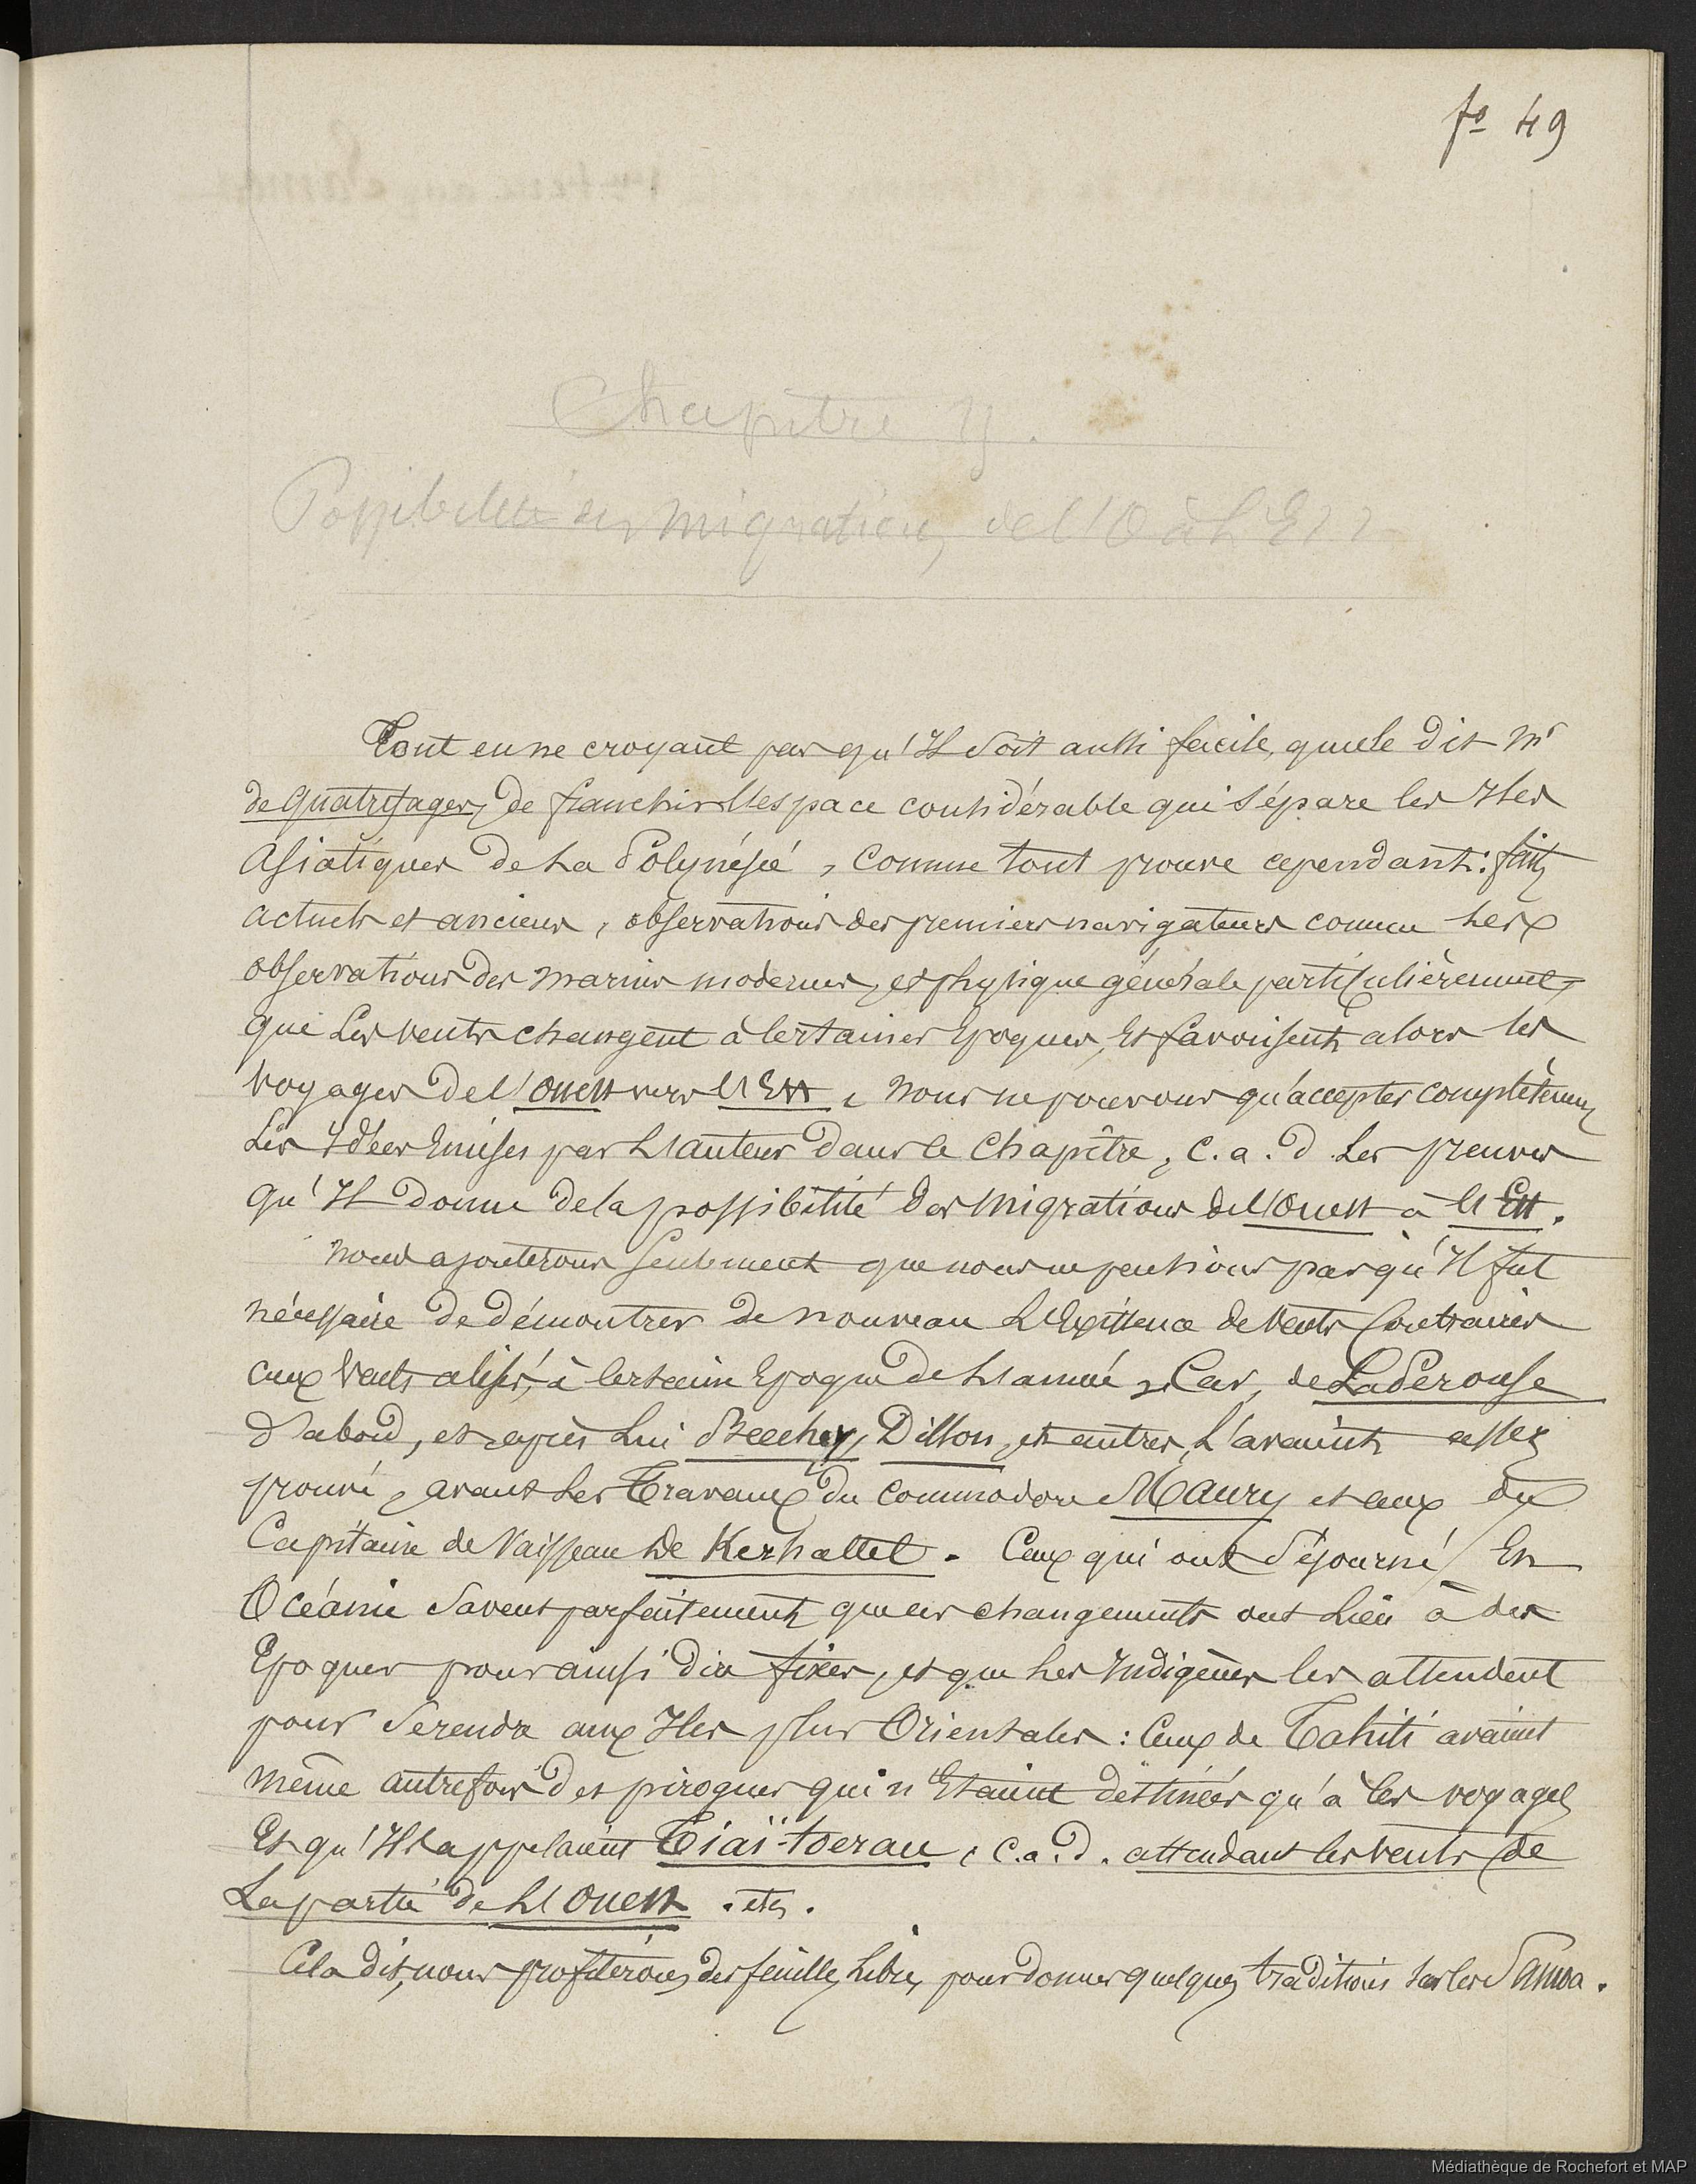 fo 49
Chapitre II.
Possibilité des migrations de l'O à l'Est
Tout en ne croyant pas qu'Il soit aussi facile, que le dit Mr
de Quatrefages, de franchir l'espace considérable qui sépare les Iles
Asiatiques de La Polynésie, comme tout prouve cependant : faits
actuels et anciens, observations des premiers navigateurs comme les
observations des marins modernes, et physique générale particulièrement,
que Les vents changent à certaines Epoques, Et favorisent alors les
voyages de l'Ouest vers l'Est, nous ne pouvons qu'accepter complètement
Les Idées Emises par L'auteur dans ce Chapître, c. a. d. Les preuves
qu'Il donne de la possibilité des Migrations de l'Ouest à l'Est.
Nous ajouterons seulement que nous ne pensions pas qu'Il fut
nécessaire de démontrer de nouveau L'Existence de vents Contraires
aux vents alisés, à certaine Epoque de L'année, Car, de LaPérouse
D'abord, et après Lui Beechey, Dillon, et autres, L'avaient assez
prouvé, avant Les Travaux du Commodore Maury et ceux du
Capitaine de Vaisseau De Kerhallet. Ceux qui ont Séjourné En
Océanie savent parfaitement que ces changements ont Lieu à des
Epoques pour ainsi dire fixes, et que Les Indigènes les attendent
pour Se rendre aux Iles plus Orientales : Ceux de Tahiti avaient
même autrefois des pirogues qui n'Etaient destinées qu'à ces voyages
Et qu'Ils appelaient Tiaï-toerau, c. a. d. attendant les vents de
La partie de L'Ouest. etc.
Cela dit, nous profiterons des feuilles Libres, pour donner quelques traditions sur les Samoa.
Médiathèque de Rochefort et MAP